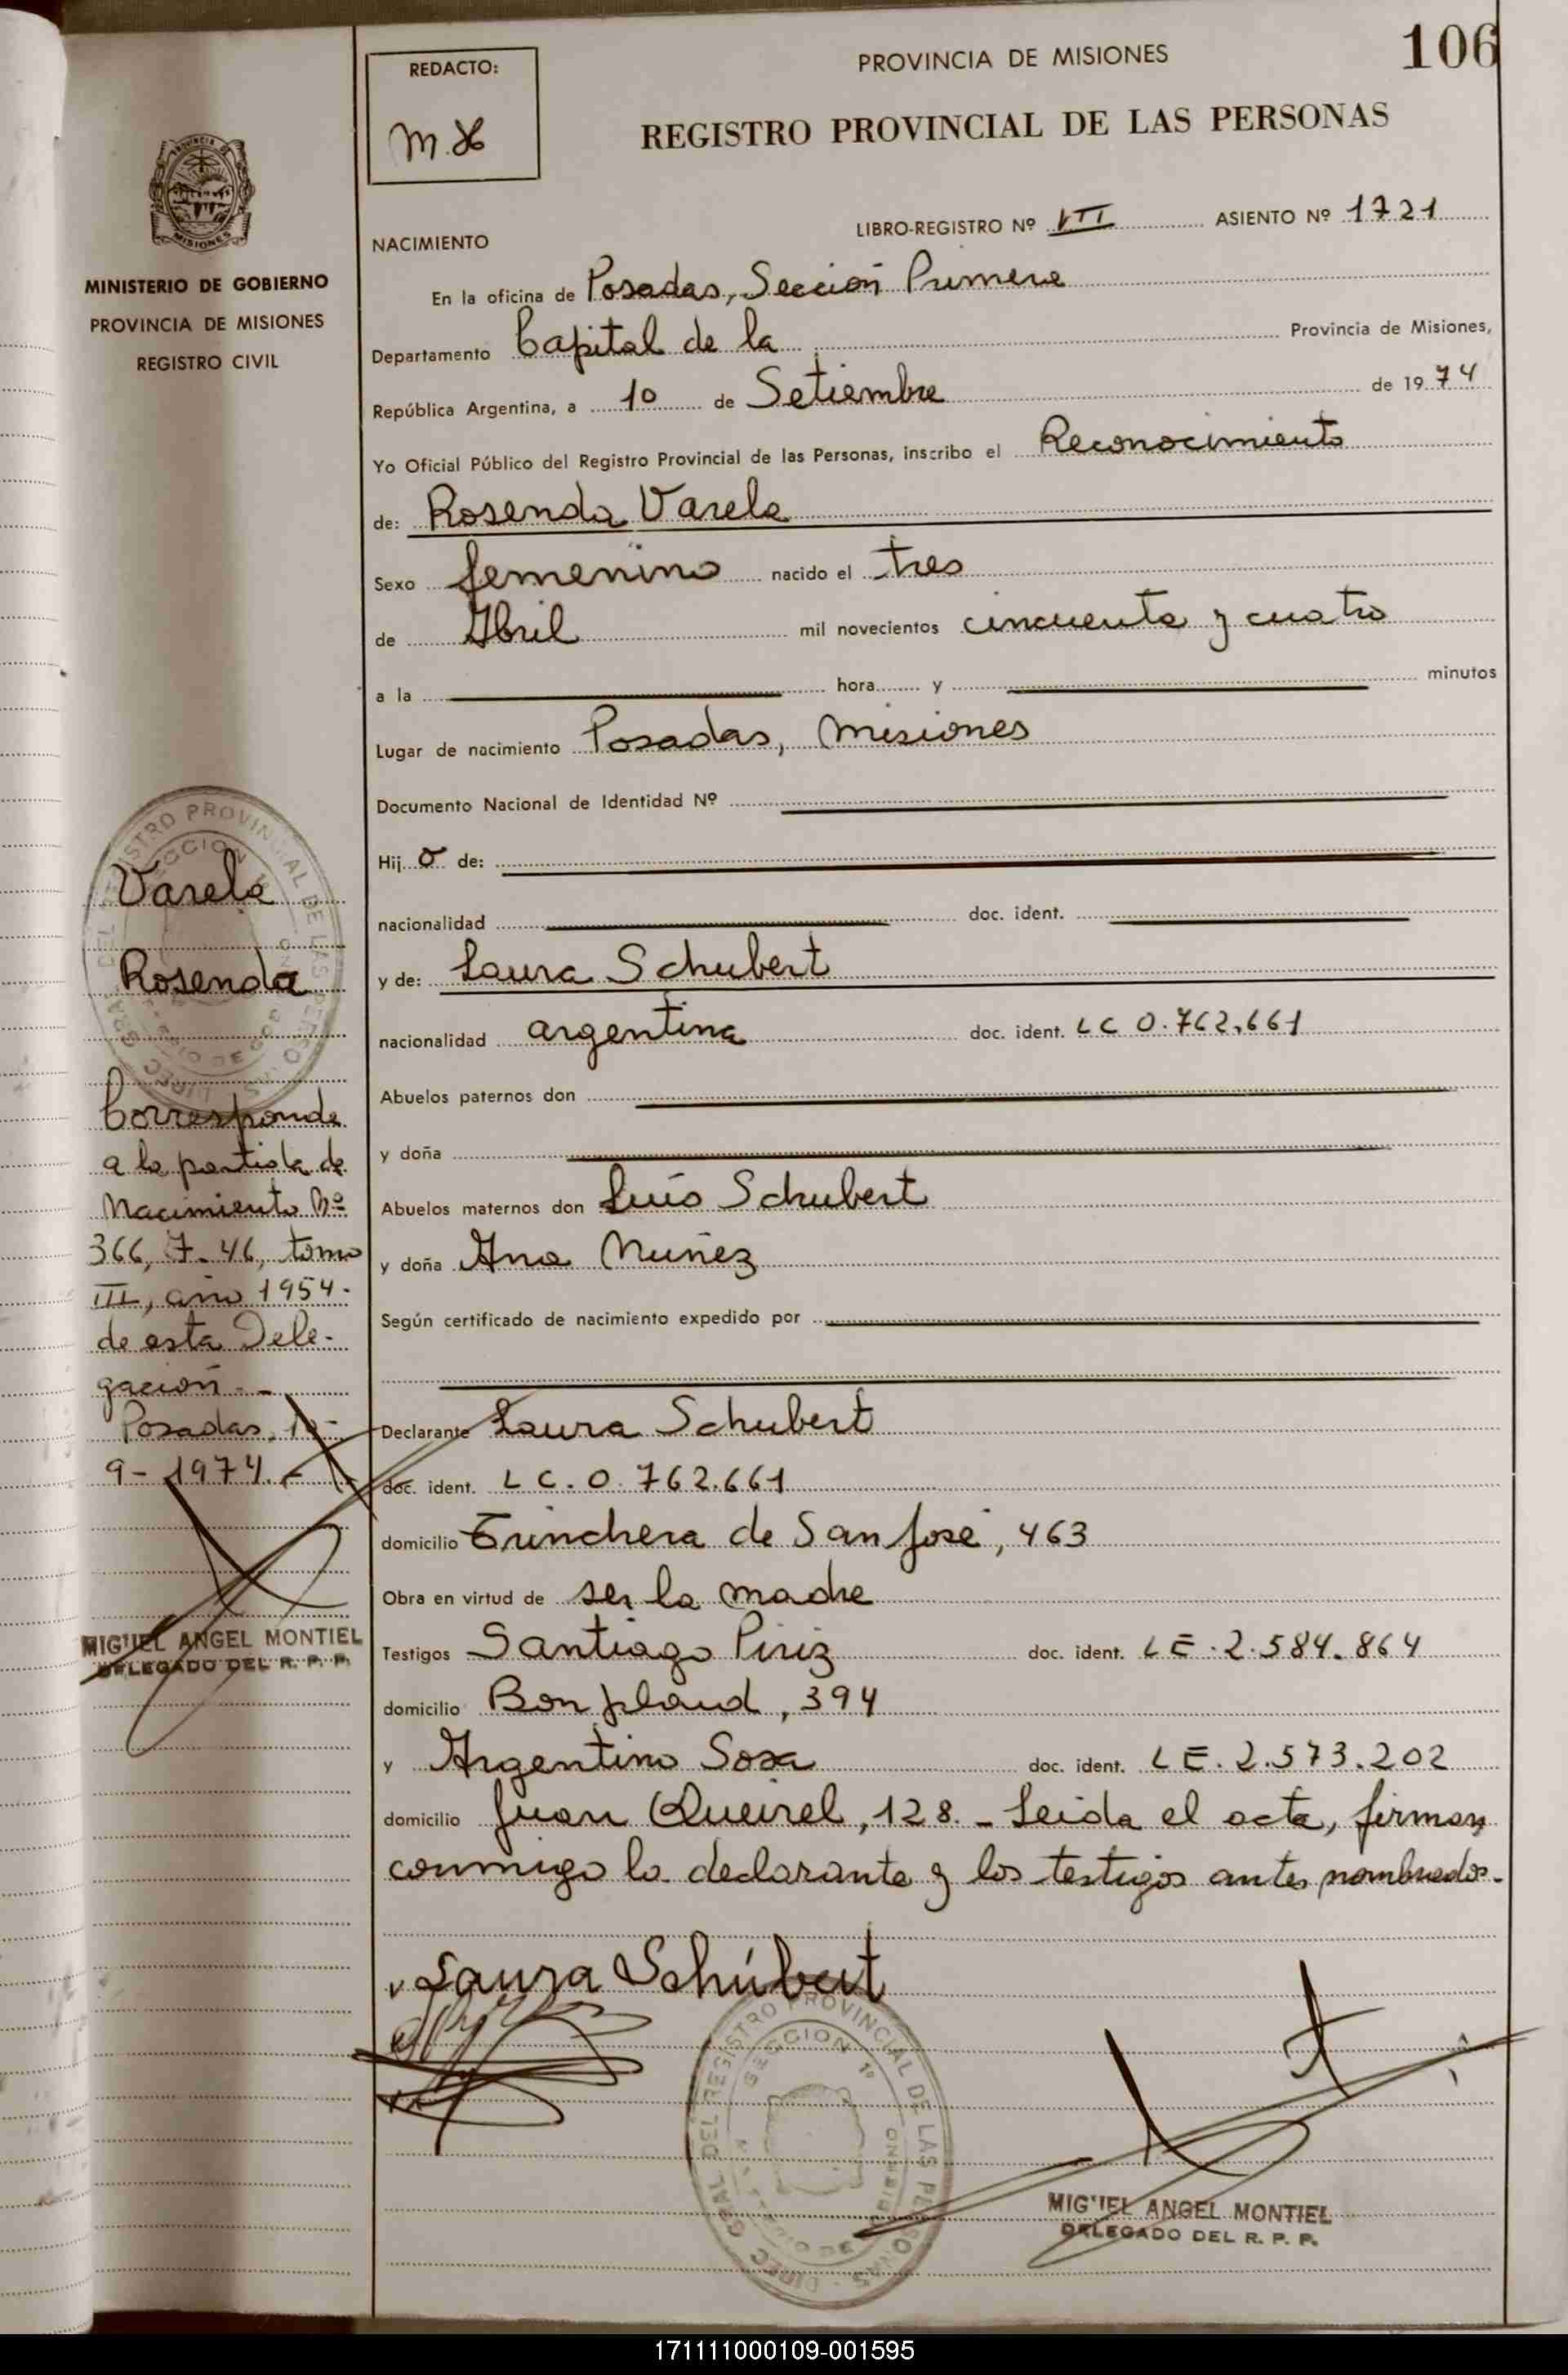 106
REDACTO:
M.H
PROVINCIA DE MISIONES
REGISTRO PROVINCIAL DE LAS PERSONAS
LIBRO-REGISTRO Nº VII ASIENTO Nº 1721
NACIMIENTO
MINISTERIO DE GOBIERNO
PROVINCIA DE MISIONES
REGISTRO CIVIL
En la oficina de Posadas, Sección Primera
Departamento Capital de la Provincia de Misiones,
República Argentina, a 10 de Setiembre de 1974
Yo Oficial Público del Registro Provincial de las Personas, inscribo el Reconocimiento
de: Rosenda Varela
Sexo femenino nacido el tres
de Abril mil novecientos cincuenta y cuatro
a la hora y minutos
Lugar de nacimiento Posadas, Misiones
Documento Nacional de Identidad Nº
Hij o de:
nacionalidad doc. ident.
y de: Laura Schubert
nacionalidad argentina doc. ident. LC 0.762.661
Abuelos paternos don
y doña
Abuelos maternos don Luis Schubert
y doña Ana Nuñez
Según certificado de nacimiento expedido por
Declarante Laura Schubert
doc. ident. L C. 0.762.661
domicilio Trinchera de San José, 463
Obra en virtud de ser la madre
Testigos Santiago Piriz doc. ident. LE.2.584.864
domicilio Bonpland, 394
y Argentino Sosa doc. ident. LE.2.573.202
domicilio Juan Queirel, 128.- Leida el acta, firman
conmigo la declarante y los testigos antes nombrados.
Laura Schúbert
DIREC. GRAL DEL REGISTRO PROVINCIAL DE LAS PERSONAS
SECCION 1ª
MIGUEL ANGEL MONTIEL
DELEGADO DEL R. P. P.
Varela
Rosenda
Corresponde
a la partida de
Nacimiento Nº
366, F. 46, tomo
III, año 1954.
de esta Dele-
gación.-
Posadas, 10-
9-1974.-
MIGUEL ANGEL MONTIEL
DELEGADO DEL R. P. P.
171111000109-001595